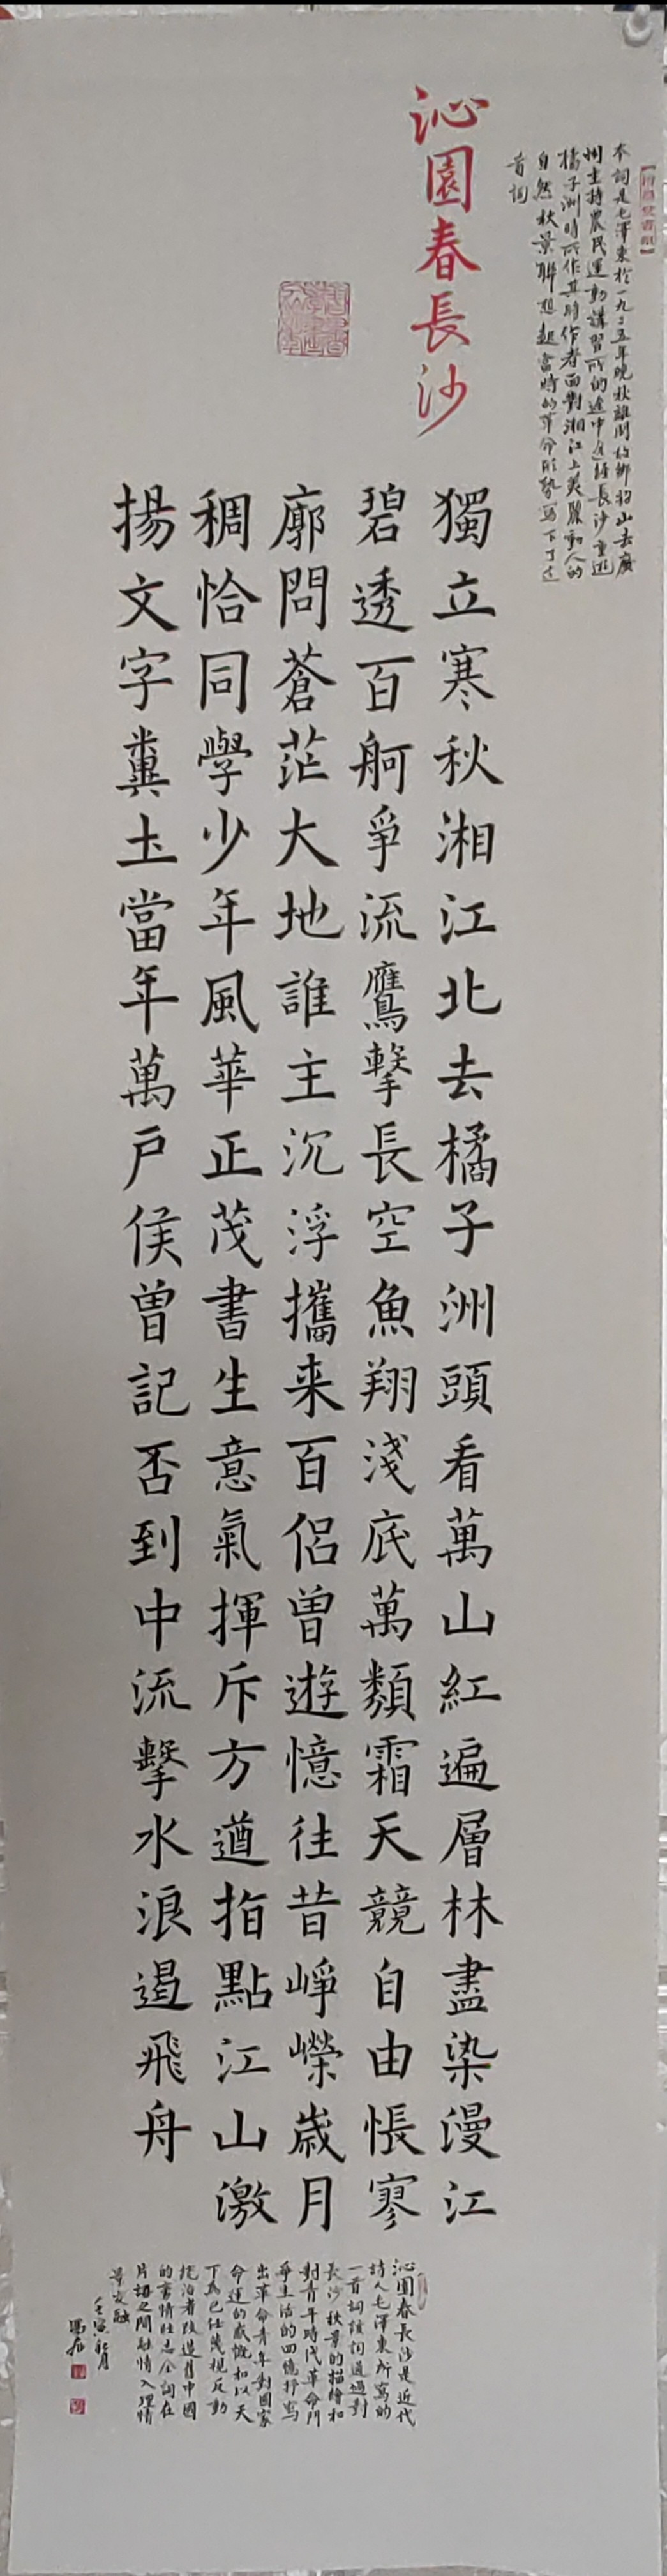 本詞是毛澤東於一九二五年晚秋離開故鄉韶山去廣
州主持農民運動講習所的途中途経長沙重遊
橘子洲時所作其時作者面對湘江上美麗動人的
自然秋景聯想起當時的革命形勢寫下了這
首詞
沁園春長沙
獨立寒秋湘江北去橘子洲頭看萬山紅遍層林盡染漫江
碧透百舸爭流鷹擊長空魚翔淺底萬類霜天競自由悵寥
廓問蒼茫大地誰主沉浮攜来百侶曾遊憶往昔崢嶸歲月
稠恰同學少年風華正茂書生意氣揮斥方遒指點江山激
揚文字糞土當年萬戶侯曾記否到中流擊水浪遏飛舟
沁園春長沙是近代
詩人毛澤東所寫的
一首詞該詞通過對
長沙秋景的描繪和
對青年時代革命鬥
爭生活的回憶抒寫
出革命青年對國家
命運的感慨和以天
下為己任蔑視反動
統治者改造舊中國
的豪情壯志全詞在
片語之間融情入理情
景交融
壬寅秋月